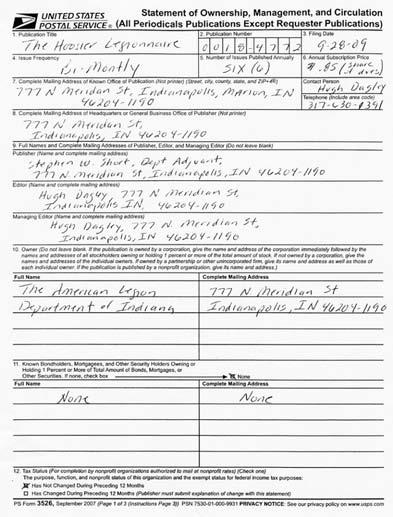 UNITED STATES POSTAL SERVICE®
Statement of Ownership, Management, and Circulation
(All Periodicals Publications Except Requester Publications)
1. Publication Title
The Hoosier Legionnaire
2. Publication Number
0018-4772
3. Filing Date
9-28-09
4. Issue Frequency
Bi-Montly
5. Number of Issues Published Annually
SIX (6)
6. Annual Subscription Price
$.85 (share of dues)
7. Complete Mailing Address of Known Office of Publication (Not printer) (Street, city, county, state, and ZIP+4®)
777 N Meridian St, Indianapolis, Marion, IN
46204-1190
Contact Person
Hugh Dagley
Telephone (Include area code)
317-630-1391
8. Complete Mailing Address of Headquarters or General Business Office of Publisher (Not printer)
777 N Meridian St,
Indianapolis, IN 46204-1190
9. Full Names and Complete Mailing Addresses of Publisher, Editor, and Managing Editor (Do not leave blank)
Publisher (Name and complete mailing address)
Stephen W. Short, Dept Adjutant,
777 N Meridian St, Indianapolis, IN 46204-1190
Editor (Name and complete mailing address)
Hugh Dagley, 777 N Meridian St,
Indianapolis IN, 46204-1190
Managing Editor (Name and complete mailing address)
Hugh Dagley, 777 N. Meridian St,
Indianapolis, IN 46204-1190
10. Owner (Do not leave blank. If the publication is owned by a corporation, give the name and address of the corporation immediately followed by the
names and addresses of all stockholders owning or holding 1 percent or more of the total amount of stock. If not owned by a corporation, give the
names and addresses of the individual owners. If owned by a partnership or other unincorporated firm, give its name and address as well as those of
each individual owner. If the publication is published by a nonprofit organization, give its name and address.)
Full Name
Complete Mailing Address
The American Legion
777 N Meridian St
Department of Indiana
Indianapolis, IN 46204-1190
11. Known Bondholders, Mortgagees, and Other Security Holders Owning or
Holding 1 Percent or More of Total Amount of Bonds, Mortgages, or
Other Securities. If none, check box
None
Full Name
Complete Mailing Address
None
None
12. Tax Status (For completion by nonprofit organizations authorized to mail at nonprofit rates) (Check one)
The purpose, function, and nonprofit status of this organization and the exempt status for federal income tax purposes:
Has Not Changed During Preceding 12 Months
Has Changed During Preceding 12 Months (Publisher must submit explanation of change with this statement)
PS Form 3526, September 2007 (Page 1 of 3 (Instructions Page 3)) PSN 7530-01-000-9931 PRIVACY NOTICE: See our privacy policy on www.usps.com